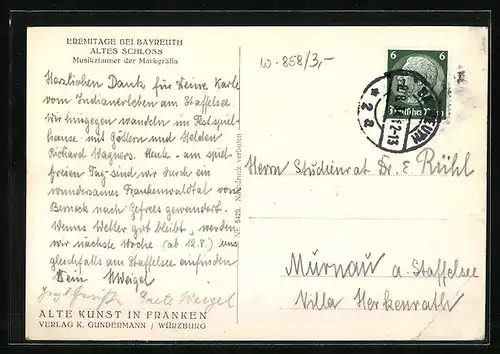 EREMITAGE BEI BAYREUTH
ALTES SCHLOSS
Musikzimmer der Markgräfin
W-858/3,-
Herzlichen Dank für Deine Karte
vom Indianerleben am Staffelsee.
Wir hingegen wandeln im Festspiel-
hause mit Göttern und Helden
Richard Wagners. Heute - am spiel-
freien Tag - sind wir durch ein
wundersames Frankenwaldtal von
Berneck nach Gefrees gewandert.
Wenns Wetter gut bleibt, werden
wir nächste Woche (ab 12.8.) uns
gleichfalls am Staffelsee einfinden
Dein Weigel
Grete Weigel
ALTE KUNST IN FRANKEN
VERLAG K. GUNDERMANN / WÜRZBURG
Nr. 5425 Nachdruck verboten
6 6
Deutsches Reich
2 a
Herrn Studienrat Dr. E Rühl
Murnau a. Staffelsee
Villa Herkenrath